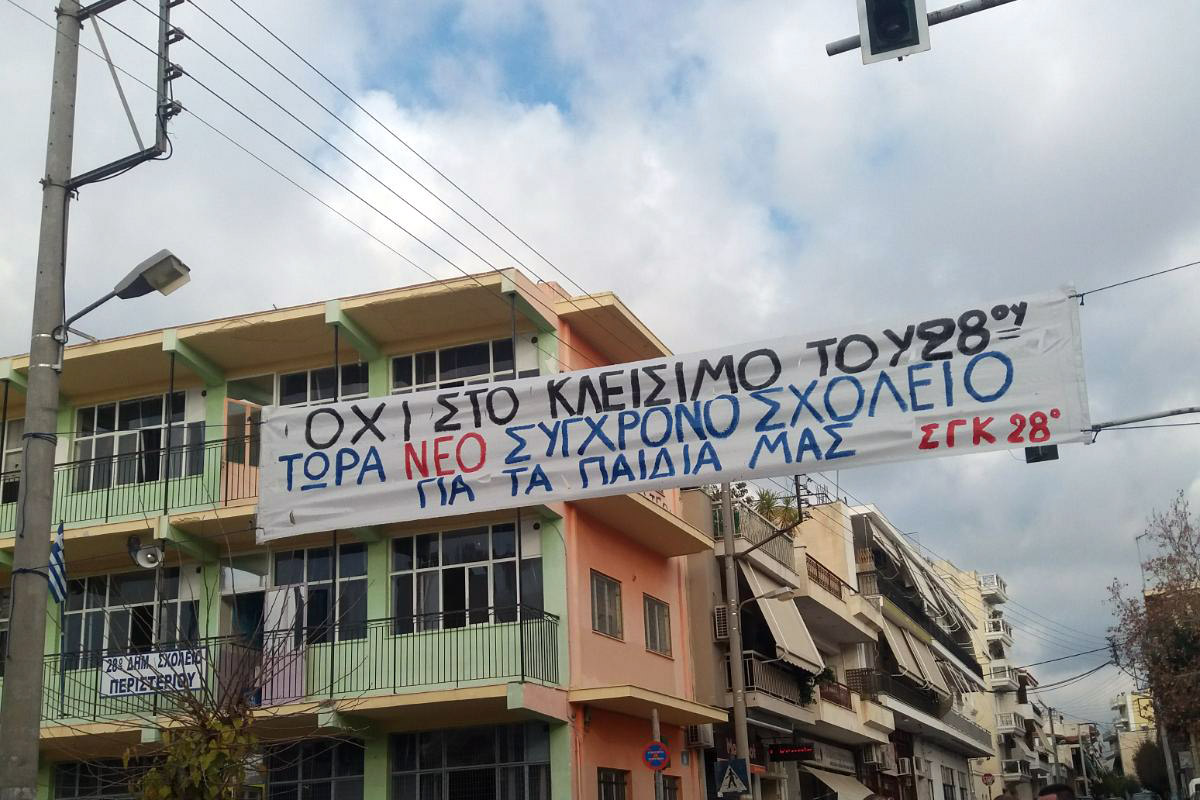 ΟΧΙ ΣΤΟ ΚΛΕΙΣΙΜΟ ΤΟΥ 28ου
ΤΩΡΑ ΝΕΟ ΣΥΓΧΡΟΝΟ ΣΧΟΛΕΙΟ
ΓΙΑ ΤΑ ΠΑΙΔΙΑ ΜΑΣ
ΣΓΚ 28°
28ο ΔΗΜ. ΣΧΟΛΕΙΟ
ΠΕΡΙΣΤΕΡΙΟΥ